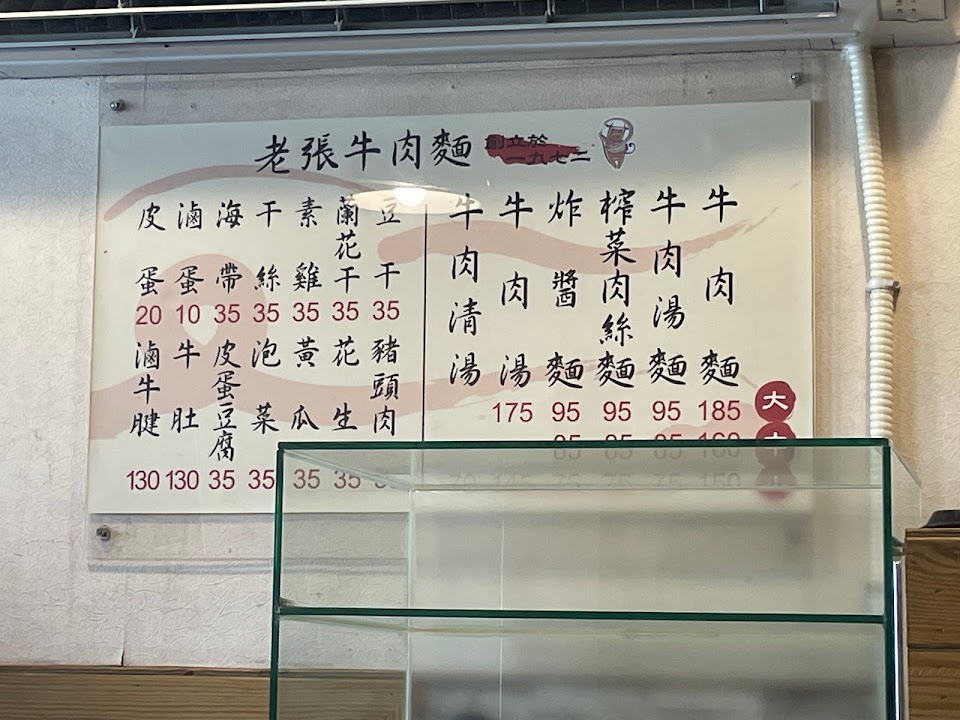 老張牛肉麵
創立於
一九七二
大
牛肉麵
185
160
150
牛肉湯麵
95
85
75
榨菜肉絲麵
95
85
75
炸醬麵
95
85
75
牛肉湯
175
145
牛肉清湯
70
豆干
35
蘭花干
35
素雞
35
干絲
35
海帶
35
滷蛋
10
皮蛋
20
豬頭肉
花生
35
黃瓜
35
泡菜
35
皮蛋豆腐
35
牛肚
130
滷牛腱
130